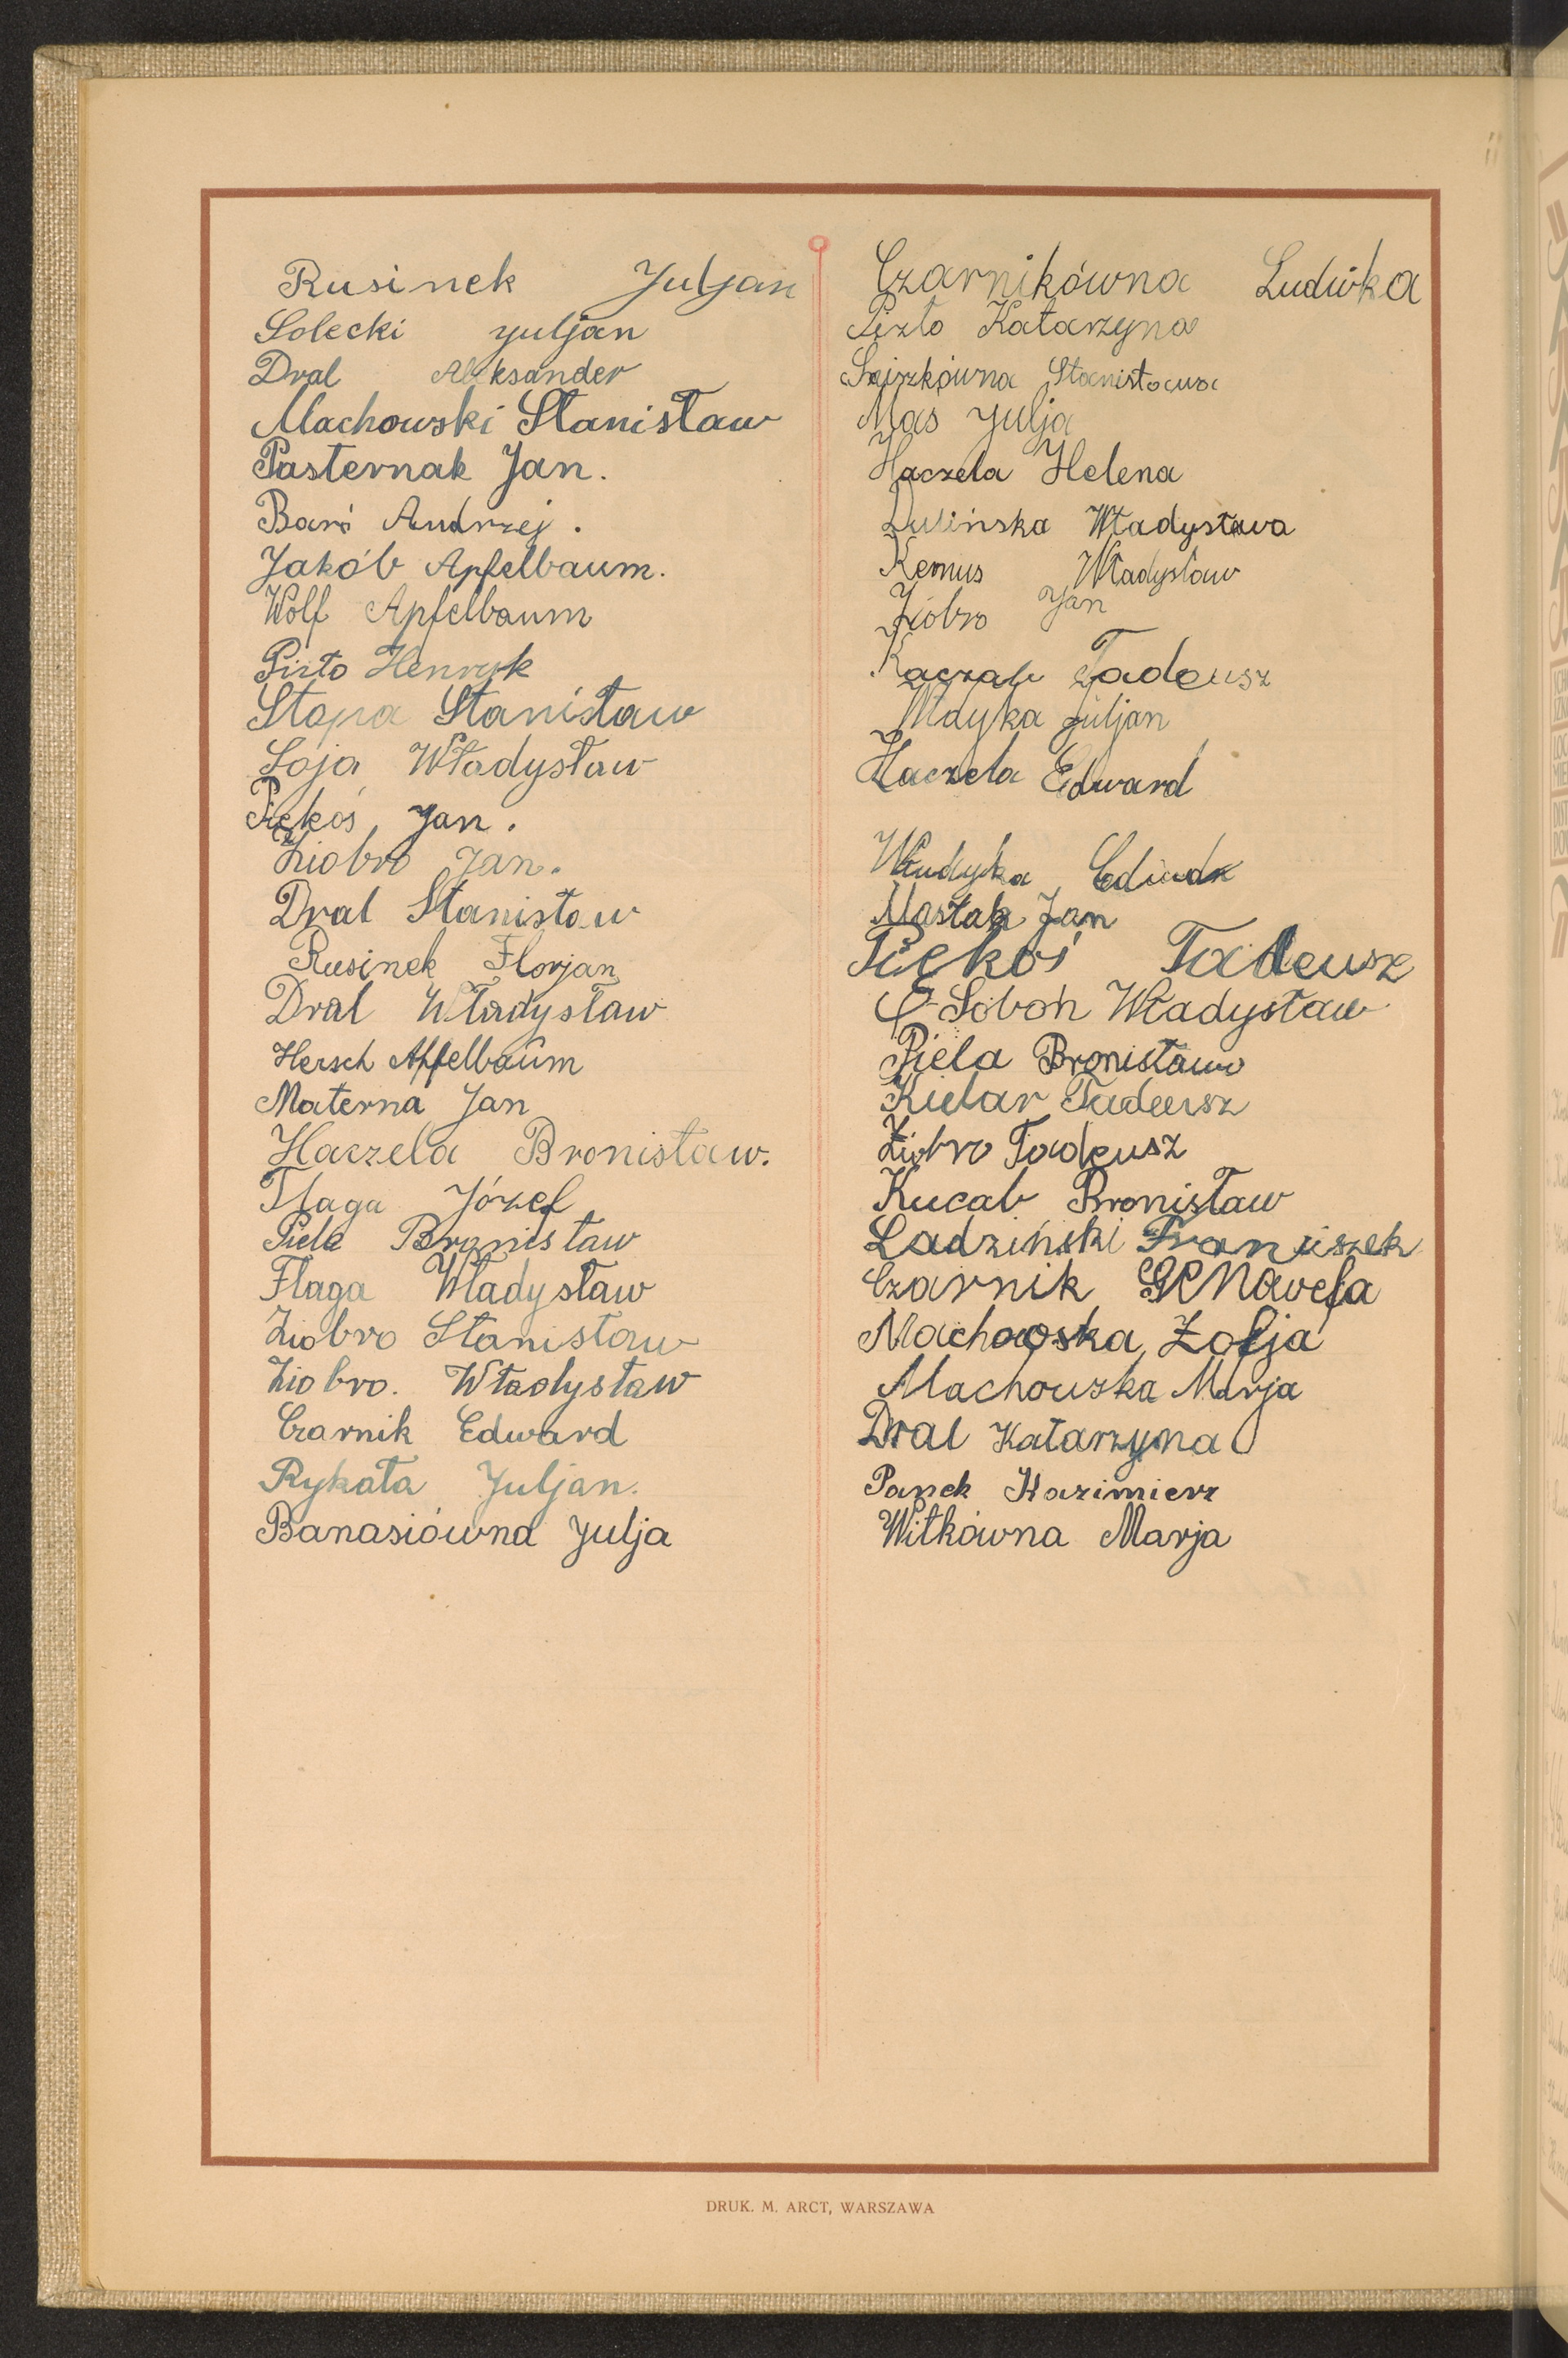 Rusinek Juljan
Solecki Juljan
Dral Aleksander
Machowski Stanisław
Pasternak Jan.
Baró Andrzej.
Jakób Apfelbaum.
Wolf Apfelbaum
Pizło Henryk
Stopa Stanisław
Soja Władysław
Piękoś Jan.
Ziobro Jan.
Dral Stanisław
Rusinek Florjan
Dral Władysław
Hersch Apfelbaum
Materna Jan
Haczela Bronisław.
Flaga Józef
Piela Bronisław
Flaga Władysław
Ziobro Stanisław
Ziobro. Władysław
Czarnik Edward
Rykała Juljan.
Banasiówna Julja
Czarnikówna Ludwika
Pizło Katarzyna
Stanisława
Mas Julja
Haczela Helena
Dulińska Władysława
Remus Władysław
Ziobro Jan
Kaczab Tadeusz
Włdyka Juljan
Haczela Edward
Władyka
Maślak Jan
Piękoś Tadeusz
Soboń Władysław
Piela Bronisława
Kielar Tadeusz
Ziobro Tadeusz
Kucab Bronisław
Ladziński Franciszek
Czarnik
Machowska Zofja
Machowska Marja
Dral Katarzyna
Panek Kazimierz
Witkówna Marja
DRUK. M. ARCT, WARSZAWA